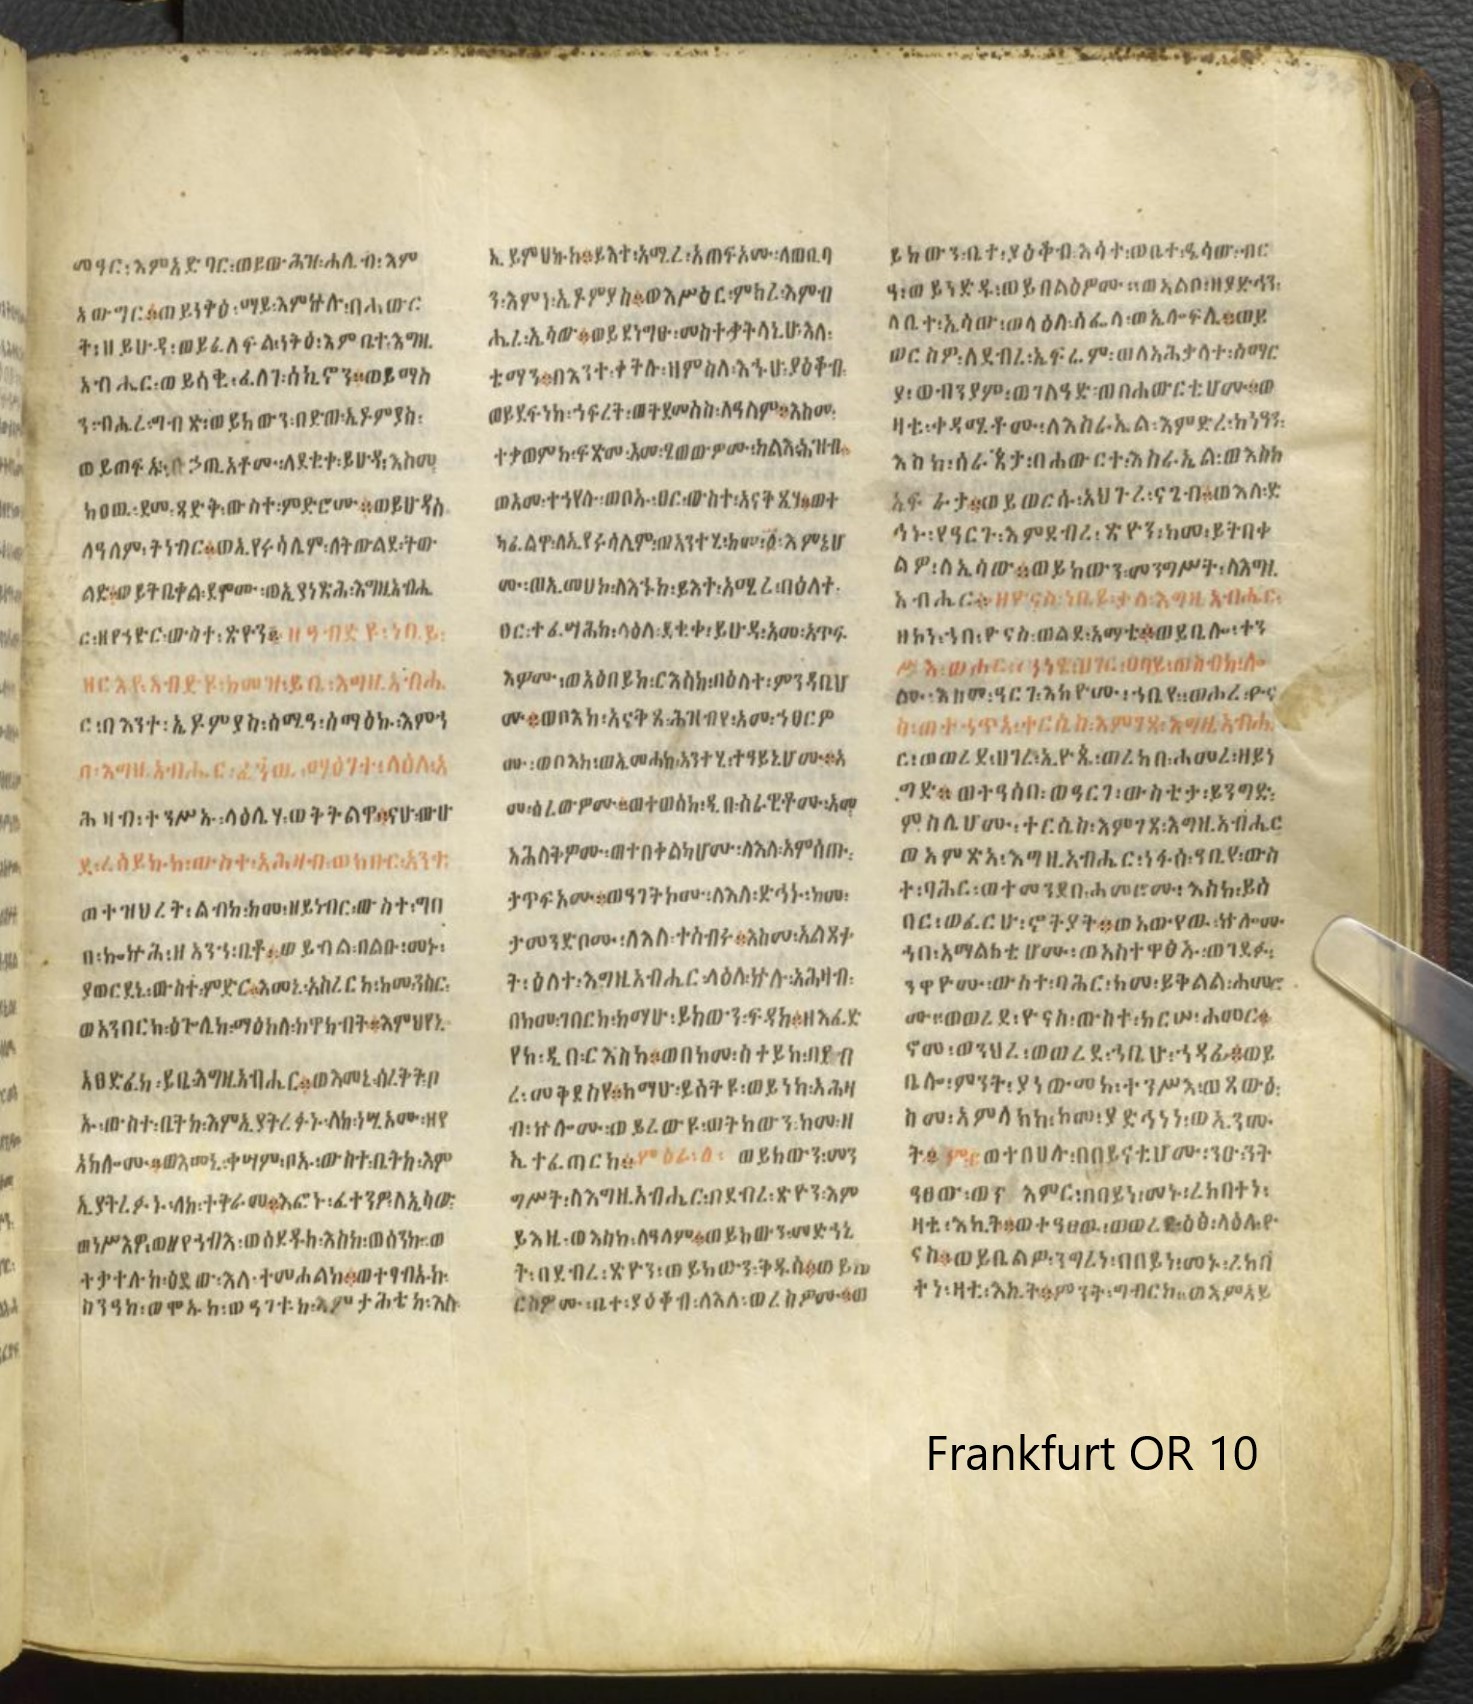 መዓር፡እምአድባር፡ወይውሕዝ፡ሐሊብ፡እም
አውግር።ወይነቅዕ፡ማይ፡እምኵሉ፡በሐውር
ት፡ዘይሁዳ፡ወይፈለፍል፡ነቅዕ፡እምቤተ፡እግዚ
አብሔር፡ወይሰቂ፡ፈለገ፡ሰኪኖን።ወይማስ
ን፡ብሔረ፡ግብጽ፡ወይከውን፡በድወ፡ኢዶምያስ፡
ወይጠፍኡ፡ኃጢአቶሙ፡ለደቂቀ፡ይሁዳ፡እስመ
ከዐዉ፡ደመ፡ጻድቅ፡ውስተ፡ምድሮሙ።ወይሁዳስ
ለዓለም፡ትነብር።ወኢየሩሳሌም፡ለትውልደ፡ትው
ልድ።ወይትቤቀል፡ደሞሙ፡ወኢያነጽሕ፡እግዚአብሔ
ር፡ዘየኀድር፡ውስተ፡ጽዮን።ዘዓብድዩ፡ነቢይ፡
ዘርእየ፡አብድዩ፡ከመዝ፡ይቤ፡እግዚአብሔ
ር፡በእንተ፡ኢዶምያስ፡ሰሚዓ፡ሰማዕኩ፡እምኀ
በ፡እግዚአብሔር፡ፈነወ፡ማዕገተ፡ላዕለ፡አ
ሕዛብ፡ተንሥኡ፡ላዕሌሃ፡ወትትልዋ።ናሁ፡ውሁ
ደ፡ረሰይኩከ፡ውስተ፡አሕዛብ፡ወኅሡር፡አንተ፡
ወተዝህረት፡ልብከ፡ከመ፡ዘይነብር፡ውስተ፡ግበ
በ፡ኰኵሕ፡ዘአንኀ፡ቤቶ።ወይብል፡በልቡ፡መኑ፡
ያወርደኒ፡ውስተ፡ምድር።እመኒ፡አስረርከ፡ከመ፡ንስር፡
ወአንበርከ፡ዕጕሊከ፡ማዕከለ፡ከዋክብት።እምህየኒ፡
አፀድፈከ፡ይቤ፡እግዚአብሔር።ወእመኒ፡ሰረቅት፡ቦ
ኡ፡ውስተ፡ቤትከ፡እምኢያትረፉኑ፡ለከ፡ነሢኦሙ፡ዘየ
አክሎሙ።ወእመኒ፡ቀሣም፡ቦኡ፡ውስተ፡ቤትከ፡እም
ኢያትረፉኑ፡ለከ፡ተትራመ።እፎኑ፡ፈተንዎ፡ለኢሳው፡
ወነሥእዎ፡ወዘየኀብእ፡ወሰደዱከ፡እስከ፡ወሰንከ፡ወ
ተቃተሉከ፡ዕደው፡እለ፡ተመሐልከ።ወተፃብኡከ፡
ከንዓከ፡ወሞኡከ፡ወዓገቱከ፡እምታሕቴከ፡እስ
ኢይምህኩከ።ይእተ፡አሚረ፡አጠፍኦሙ፡ለጠቢባ
ን፡እምነ፡ኢዶምያስ።ወእሥዕር፡ምክረ፡እምብ
ሔረ፡ኢሳው።ወይደነግፁ፡መስተቃትላኒሁ፡እለ፡
ቴማን።በእንተ፡ቀትሉ፡ዘምስለ፡እኁሁ፡ያዕቆብ፡
ወይደፍነከ፡ኀፍረት፡ወትደመሰስ፡ለዓለም።እስመ፡
ተቃወምኮ፡ፍጽመ፡አመ፡ፄወውዎሙ፡ክልእ፡ሕዝብ
ወአመ፡ተኀየሉ፡ወቦኡ፡ፀር፡ውስተ፡አናቅጺሃ።ወተ
ካፈልዋ፡ለኢየሩሳሌም፡ወአንተሂ፡ከመ፡፩፡እምኔሆ
ሙ፡ወኢመሀከ፡ለእኁከ፡ይእተ፡አሚረ፡በዕለት፡
ፀር፡ተፈሣሕከ፡ላዕለ፡ደቂቀ፡ይሁዳ፡አመ፡አጥፍ
እዎሙ፡ወአዕበይከ፡ርእስከ፡በዕለተ፡ምንዳቤሆ
ሙ።ወቦእከ፡አናቅጸ፡ሕዝብየ፡አመ፡ኀፀርዎ
ሙ፡ወቦእከ፡ወኢመሐከ፡አንተሂ፡ተዓይኒሆሙ።አ
መ፡ፅረውዎሙ።ወተወሰከ፡ዲበ፡ሰራዊቶሙ፡አመ
አሕለቅዎሙ፡ወተበቀልካሆሙ፡ለእለ፡አምሰጡ፡
ታጥፍኦሙ።ወዓገትኮሙ፡ለእለ፡ድኅኑ፡ከመ፡
ታመንድቦሙ፡ለእለ፡ተስብሩ።እስመ፡አልጸቀ
ት፡ዕለተ፡እግዚአብሔር፡ላዕለ፡ኵሉ፡አሕዛብ፡
በከመ፡ገበርከ፡ከማሁ፡ይከውን፡ፍዳከ።ዘእፈድ
የከ፡ዲበ፡ርእስከ።ወበከመ፡ሰተይከ፡በደብ
ረ፡መቅደስየ።ከማሁ፡ይሰትዩ፡ወይነክ፡አሕዛ
ብ፡ኵሎሙ፡ወይረውዩ፡ወትከውን፡ከመ፡ዘ
ኢተፈጠርከ። ወይከውን፡መን
ግሥት፡ለእግዚአብሔር፡በደብረ፡ጽዮን፡እም
ይእዜ፡ወእስከ፡ለዓለም።ወይከውን፡መድኀኒ
ት፡በደብረ፡ጽዮን፡ወይከውን፡ቅዱስ።ወይወ
ርስዎሙ፡ቤተ፡ያዕቆብ፡ለእለ፡ወረስዎሙ።ወ
ይከውን፡ቤተ፡ያዕቆብ፡እሳተ፡ወቤተ፡ዔሳው፡ብር
ዓ፡ወይነድዱ፡ወይበልዕዎሙ፡፡ወአልቦ፡ዘያድኅን፡
ለቤተ፡ኢሳው፡ወላዕለ፡ሰፌላ፡ወኢሎፍሊ።ወይ
ወርስዎ፡ለደብረ፡ኤፍሬም፡ወለአሕቃላተ፡ሰማር
ያ፡ወብንያም፡ወገለዓድ፡ወበሐውርቲሆሙ።ወ
ዛቲ፡ቀዳሚቶሙ፡ለእስራኤል፡እምድረ፡ከነዓን፡
እስከ፡ሰራጵታ፡በሐውርተ፡እስራኤል፡ወእስከ
ኤፍራታ።ወይወርሱ፡አህጉረ፡ናጌብ።ወእለ፡ድ
ኅኑ፡የዓርጉ፡እምደብረ፡ጽዮን፡ከመ፡ይትበቀ
ልዎ፡ለኢሳው።ወይከውን፡መንግሥት፡ለእግዚ
አብሔር።ዘዮናስ፡ነቢይ፡ቃለ፡እግዚአብሔር፡
ዘኮነ፡ኀበ፡ዮናስ፡ወልደ፡አማቴ።ወይቤሎ፡ተን
ሥእ፡ወሑር፡ነነዌ፡ሀገር፡ዐባይ፡ወስብክ፡ሎ
ሙ፡እስመ፡ዓርገ፡እከዮሙ፡ኀቤየ፡፡ወሐረ፡ዮና
ስ፡ወተኀጥአ፡ተርሴስ፡እምገጸ፡እግዚአብሔ
ር፡ወወረደ፡ሀገረ፡ኢዮጴ፡ወረከበ፡ሐመረ፡ዘይነ
ግድ።ወተዓሰበ፡ወዓርገ፡ውስቴታ፡ይንግድ፡
ምስሌሆሙ፡ተርሴስ፡እምገጸ፡እግዚአብሔር
ወአምጽአ፡እግዚአብሔር፡ነፋሰ፡ዓቢየ፡ውስ
ተ፡ባሕር፡ወተመንደበ፡ሐመሮሙ፡እስከ፡ይሰ
በር፡ወፈርሁ፡ኖትያት።ወአውየዉ፡ኵሎሙ፡
ኀበ፡አማልክቲሆሙ፡ወአስተዋፅኡ፡ወገደፉ፡
ንዋዮሙ፡ውስተ፡ባሕር፡ከመ፡ይቅልል፡ሐመሮ
ሙ፡፡ወወረደ፡ዮናስ፡ውስተ፡ከርሠ፡ሐመር።
ኖመ፡ወንህረ፡ወወረደ፡ኀቤሁ፡ኀዳፊ።ወይ
ቤሎ፡ምንት፡ያነውመከ፡ተንሥእ፡ወጸውዕ፡
ስመ፡አምላክከ፡ከመ፡ያድኅነነ፡ወኢንሙ
ት። ወተበሀሉ፡በበይናቲሆሙ፡ንዑ፡ንት
ዓፀው፡ወናእምር፡በበይነ፡መኑ፡ረከበተነ፡
ዛቲ፡እኪት።ወተዓፀዉ፡ወወረደ፡ዕፅ፡ላዕለ፡ዮ
ናስ።ወይቤልዎ፡ንግረነ፡በበይነ፡መኑ፡ረከበ
ተነ፡ዛቲ፡እኪት።ምንት፡ግብርከ፡፡ወእምአይ
Frankfurt OR 10